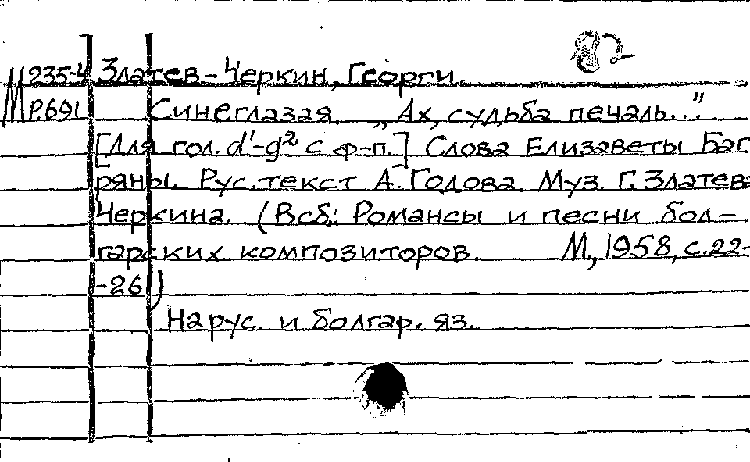 82
М235-4 Златев-Черкин, Георги.
Р691 Синеглазая. „Ах, судьба печаль..."
[Для гол. d'-g² с ф-п.] Слова Елизаветы Баг
ряны. Рус. текст А. Годова. Муз. Г. Златева
Черкина. (В сб.: Романсы и песни бол-
гарских композиторов. М., 1958, с. 22-
-26)
На рус. и болгар. яз.